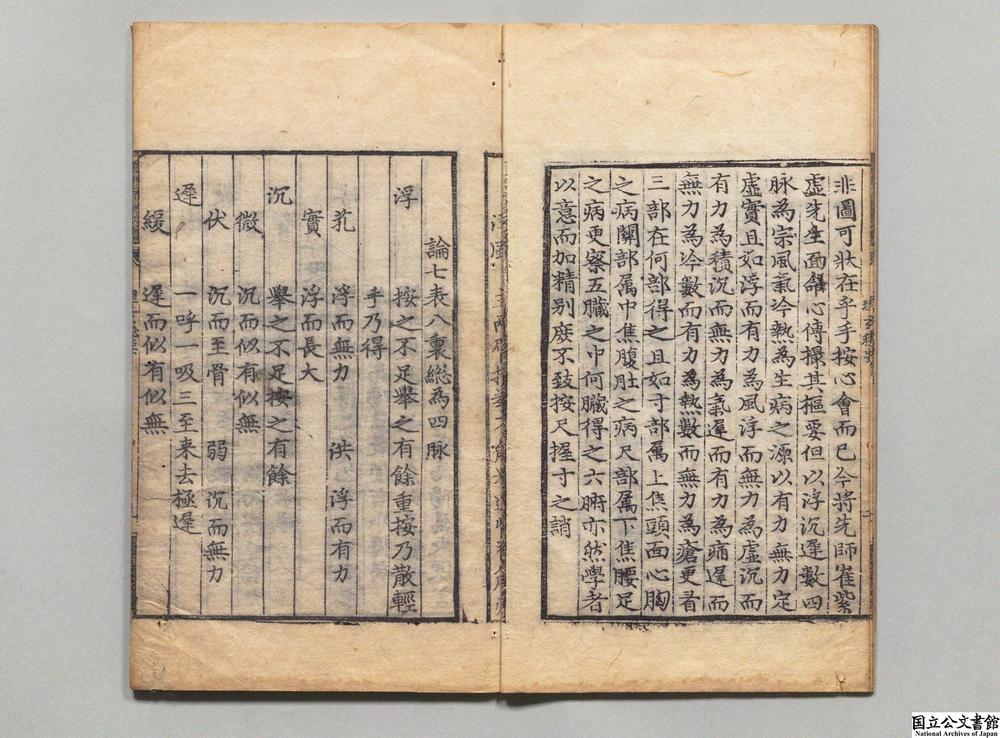 非圖可狀在乎手按心會而已今將先師崔紫
虛先生面命心傳撮其樞要但以浮沉遲數四
脉為宗風氣冷熱為生病之源以有力無力定
虛實且如浮而有力為風浮而無力為虛沉而
有力為積沉而無力為氣遲而有力為痛遲而
無力為冷數而有力為熱數而無力為瘡更看
三部在何部得之且如寸部属上焦頭面心胸
之病關部属中焦腹肚之病尺部属下焦腰足
之病更察五臟之中何臟得之六腑亦然學者
以意而加精别庶不致按尺握寸之誚
論七表八裏緫為四脉
浮 按之不足舉之有餘重按乃散輕
手乃得
芤 浮而無力 洪 浮而有力
實 浮而長大
沉 舉之不足按之有餘
微 沉而似有似無
伏 沉而至骨 弱 沉而無力
遲 一呼一吸三至来去極遲
緩 遲而似有似無
国立公文書館
National Archives of Japan